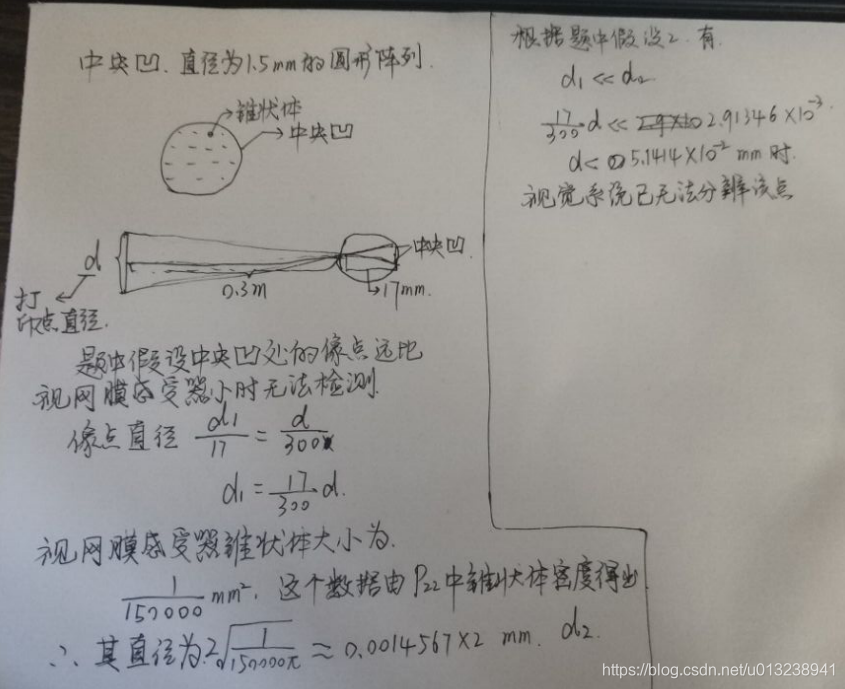 中央凹. 直径为1.5mm的圆形阵列.
锥状体
中央凹
d
中央凹.
0.3m
17mm.
打
印点直径.
题中假设中央凹处的像点远比
视网膜感受器小时无法检测.
像点直径 d1/17 = d/300
d1 = 17/300 d.
视网膜感受器锥状体大小为.
1/150000 mm², 这个数据由P22中锥状体密度得出
∴ 其直径为.2√(1/150000π) ≈ 0.0014567×2 mm. d2.
根据题中假设2.有.
d1 << d2
17/300 d << 2.91346×10⁻³.
d< 5.1414×10⁻² mm 时.
视觉系统已无法分辨该点
https://blog.csdn.net/u013238941